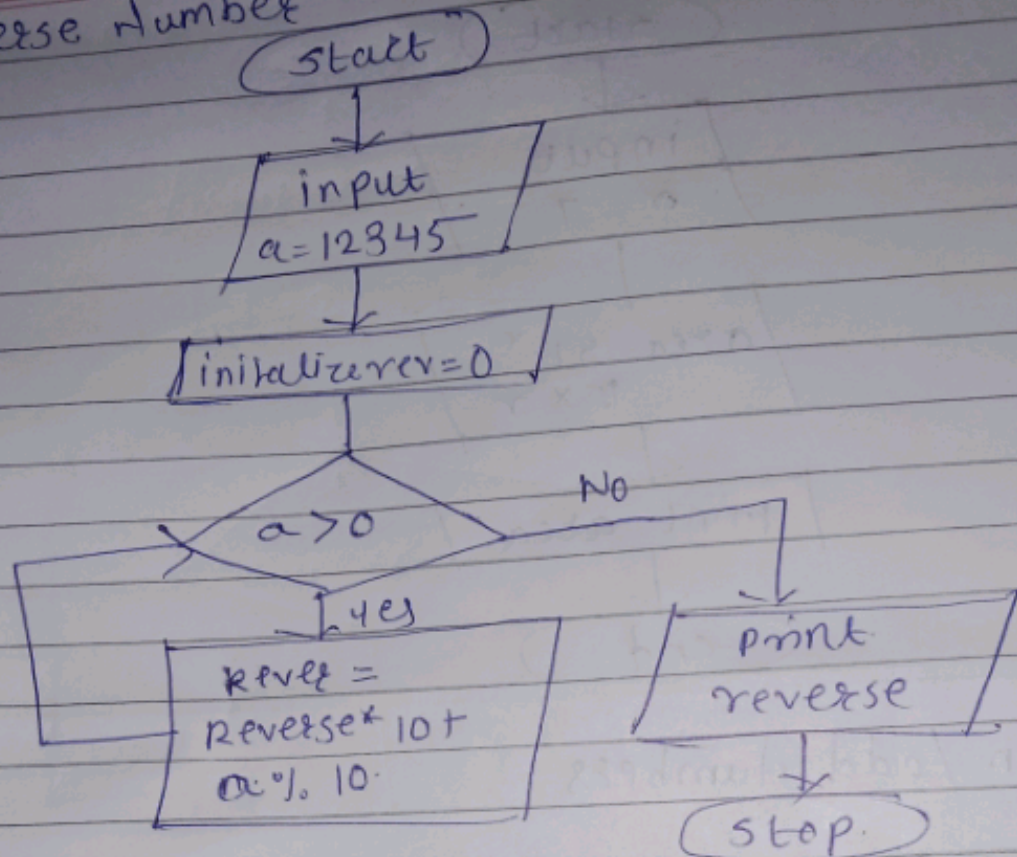 erse Number
Start
input
a=12345
initalizerer=0
a>0
No
yes
Rever =
Reverse* 10+
a % 10.
print
reverse
Stop.